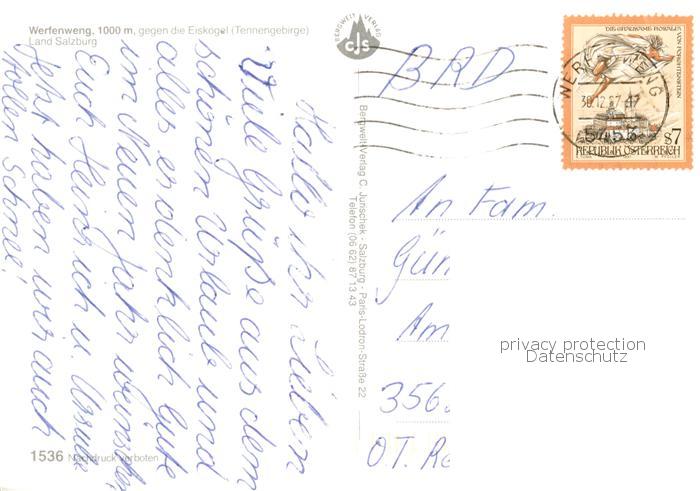 Werfenweng, 1000 m, gegen die Eiskogel (Tennengebirge)
Land Salzburg
Hallo ihr Lieben
Viele Grüße aus dem
schönen Urlaub und
alles erdenklich Gute
im Neuen Jahr wünschen
Euch Heinrich u. Ursula
Jetzt haben wir auch
tollen Schnee!
1536 Nachdruck verboten
BERGWELT VERLAG
CJS
Bergwelt-Verlag C. Jurischek - Salzburg - Paris-Lodron-Straße 22
Telefon (06 62) 87 13 43
BRD
DIE GRAUSAME ROSALIA
VON FORCHTENSTEIN
WERFENWENG
30.12.97-17
5453
S7
REPUBLIK ÖSTERREICH
An Fam.
Gün
Am
356
O.T. Ro
privacy protection
Datenschutz